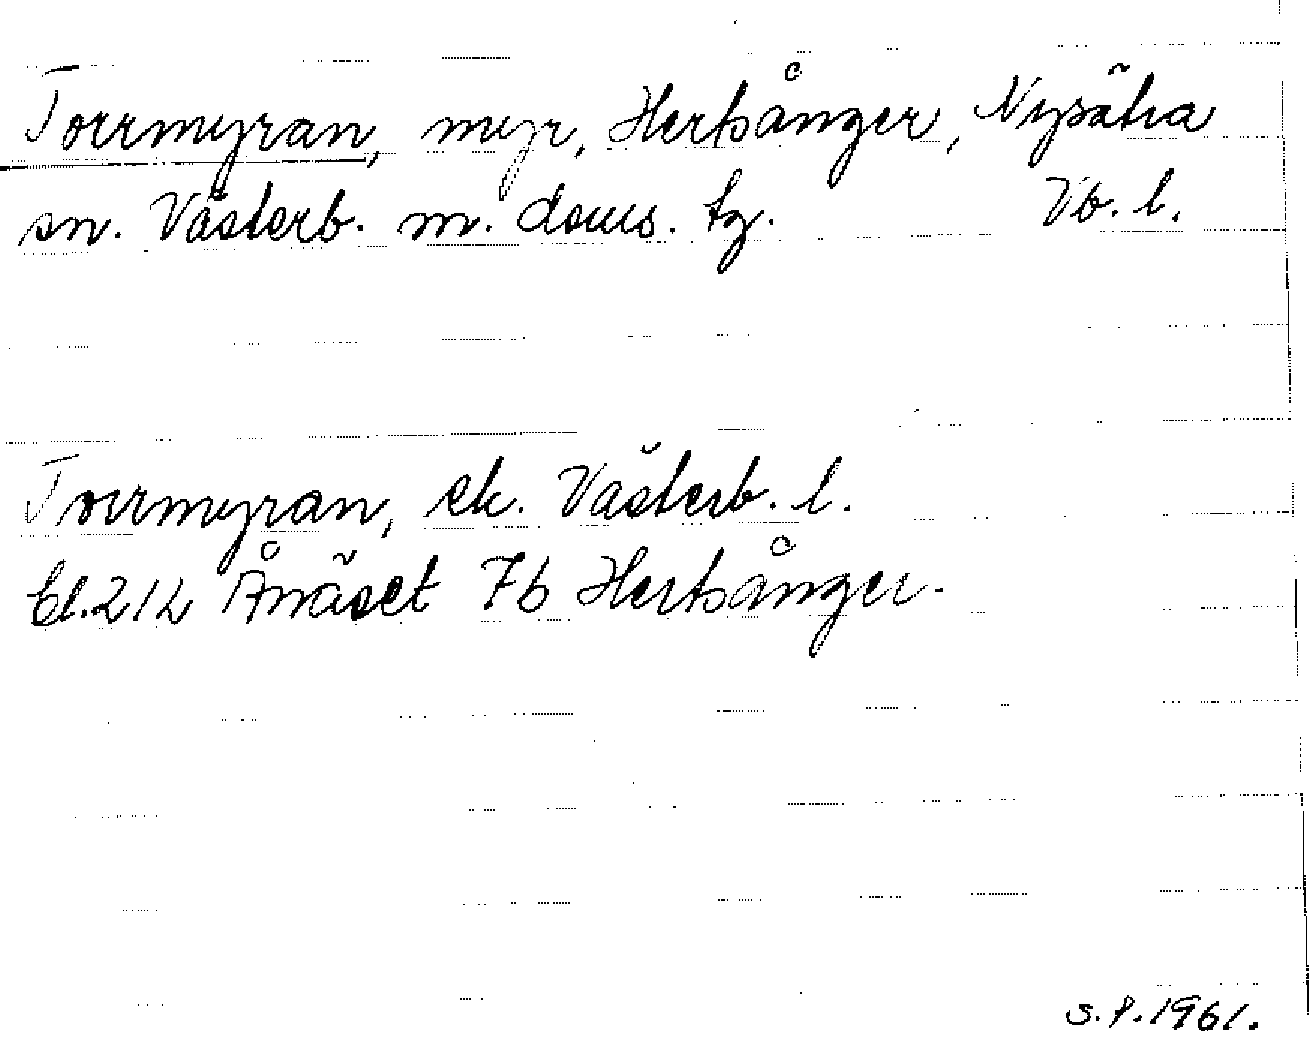 Torrmyran, myr, Hertsånger, Nysätra
sn. Västerb. m. doms. tg. Vb. l.
Torrmyran, ek. Västerb. l.
Bl. 212 Ånäset 7b Hertsånger.
S.P. 1961.